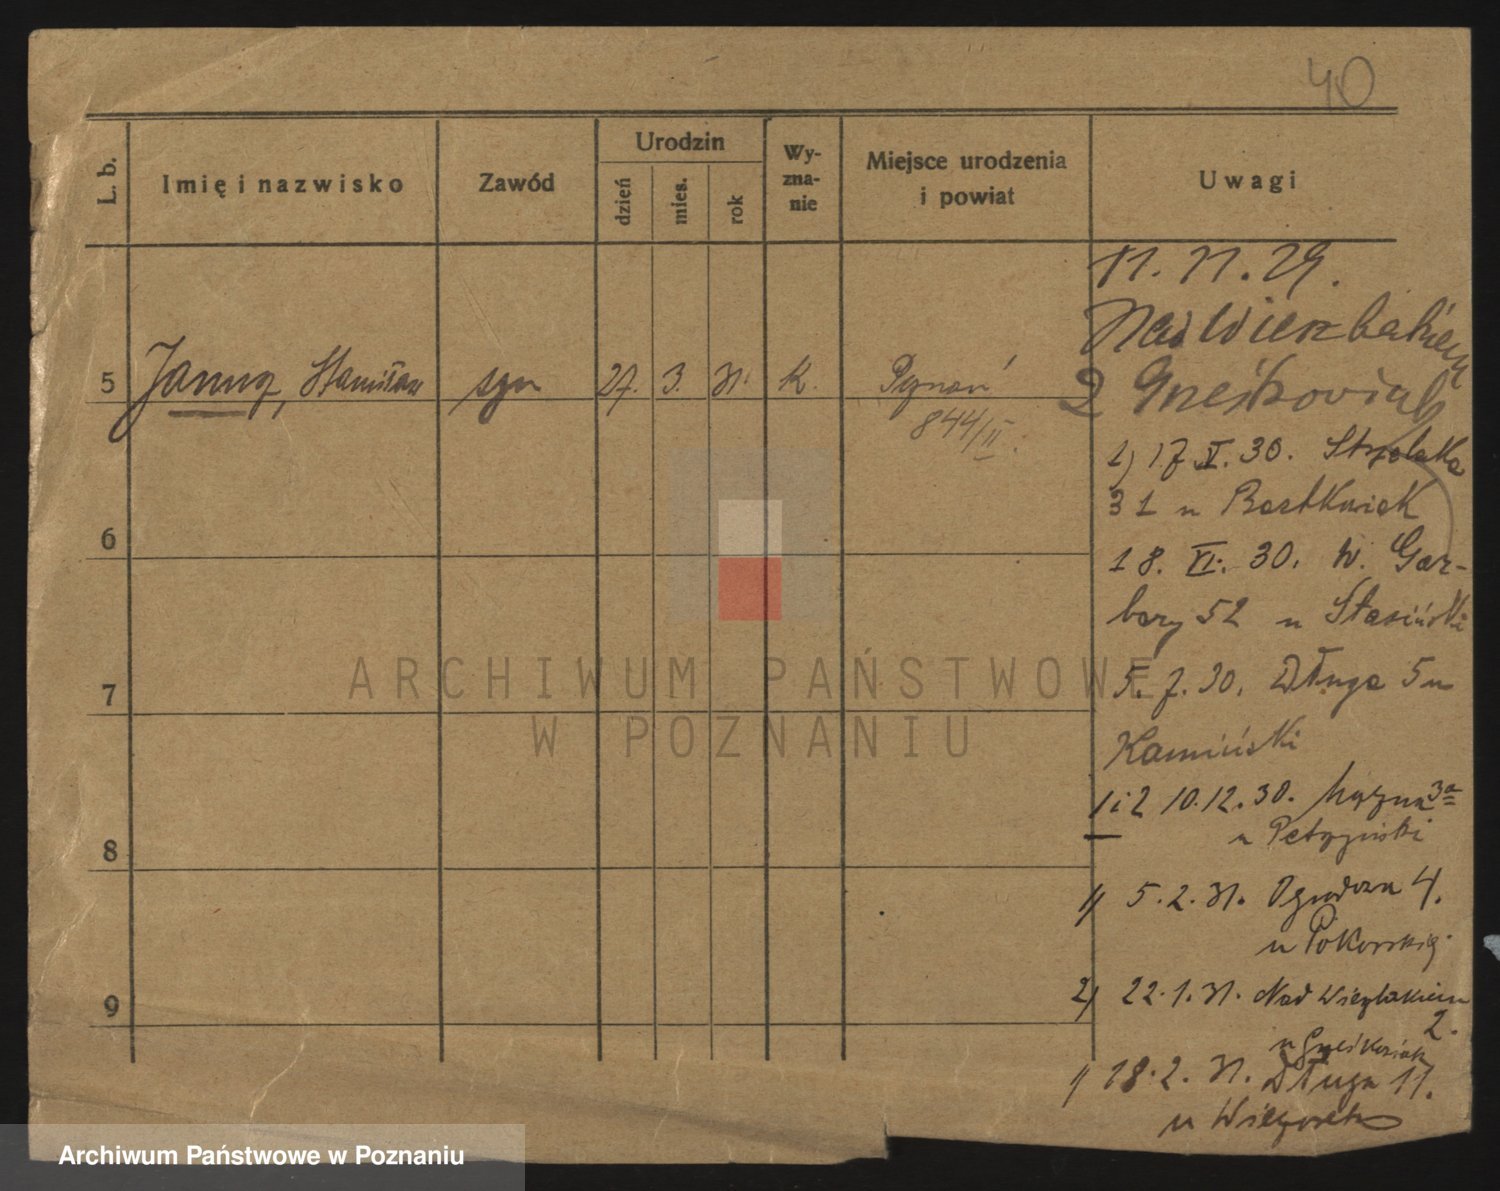 40
L. b.
Imię i nazwisko
Zawód
Urodzin
dzień
mies.
rok
Wy-
zna-
nie
Miejsce urodzenia
i powiat
Uwagi
11. 11. 29.
Nad Wierzbakiem
2 Gneśkowiak
5 Stanisław syn 27. 3. 31. k. Poznań
844/II.
1) 17 V. 30. Strzelecka
31 u Bartkwiak
18. VI. 30. W. Gar-
bary 52 u Stasiński
5. 7. 30. Długa 5 u
Kamiński
1 i 2 10.12.30. 3a
u
1) 5. 2. 31. Ogrodowa 4.
u Pokorskiej.
2) 22. 1. 31. Nad Wierzbakiem
2.
u Gneśkowiak
1) 18. 2. 31. Długa 11.
u Wieczorek
6
7
8
9
ARCHIWUM PAŃSTWOWE
W POZNANIU
Archiwum Państwowe w Poznaniu